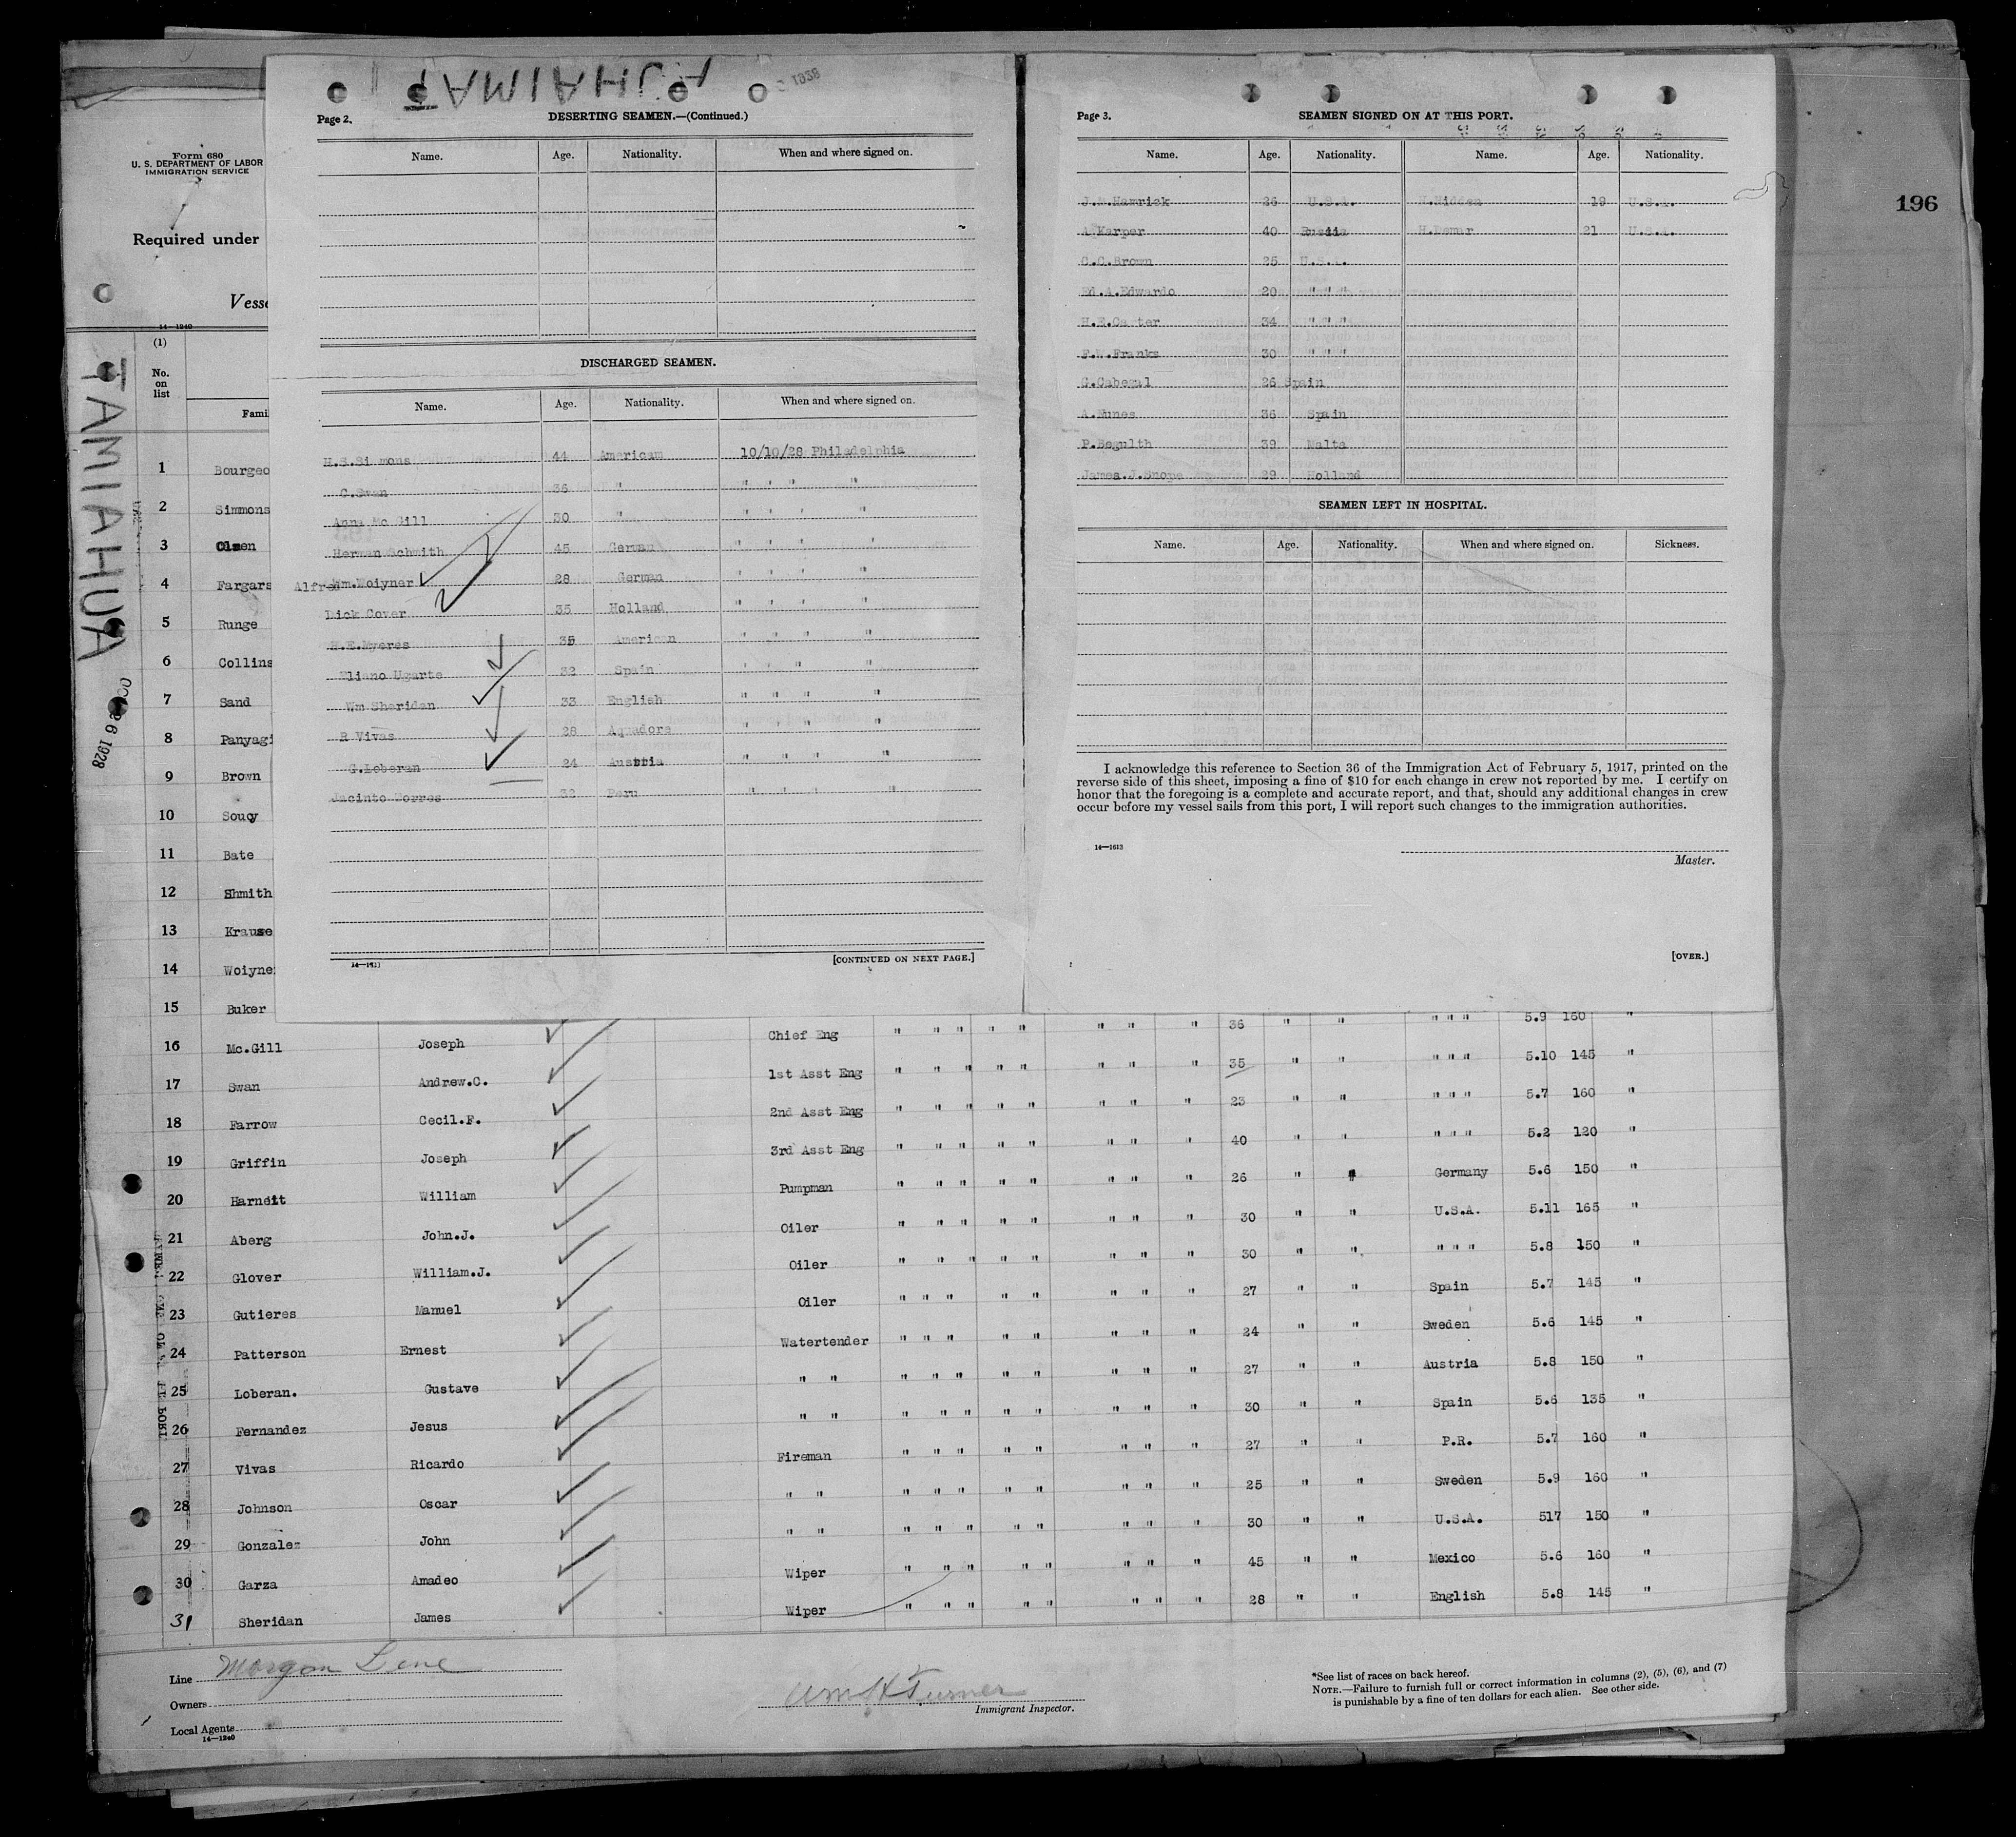 TAMIAHUA
Page 2.
DESERTING SEAMEN.—(Continued.)
Name. Age. Nationality. When and where signed on.
DISCHARGED SEAMEN.
Name. Age. Nationality. When and where signed on.
H.S.Simmons 44 American 10/10/28 Philadelphia
C.Swan 36 " " " " "
Anna Mc Gill 30 " " " " "
Herman Schmith 45 German " " " "
Alfred Wm.Woiyner 28 German " " " "
Dick Cover 35 Holland " " " "
H.E.Myeres 35 American " " " "
Eliano Ugarte 32 Spain " " " "
Wm Sheridan 33 English " " " "
R Vivas 28 Aquadore " " " "
G.Loberan 24 Austria " " " "
Jacinto Torres 32 Peru " " " "
14—1611
[CONTINUED ON NEXT PAGE.]
Page 3.
SEAMEN SIGNED ON AT THIS PORT.
Name. Age. Nationality. Name. Age. Nationality.
J.M.Hamrick 26 U.S.A. H.Hidden 19 U.S.A.
A.Karper 40 Russia H.Demar 21 U.S.A.
C.C.Brown 25 U.S.A.
Ed.A.Edwardo 20 " " "
H.E.Carter 34 " " "
F.W.Franks 30 " " "
C.Cabegal 26 Spain
A.Nunes 36 Spain
P.Begulth 39 Malta
James.J.Snope 29 Holland
SEAMEN LEFT IN HOSPITAL.
Name. Age. Nationality. When and where signed on. Sickness.
I acknowledge this reference to Section 36 of the Immigration Act of February 5, 1917, printed on the
reverse side of this sheet, imposing a fine of $10 for each change in crew not reported by me. I certify on
honor that the foregoing is a complete and accurate report, and that, should any additional changes in crew
occur before my vessel sails from this port, I will report such changes to the immigration authorities.
14—1613
Master.
[OVER.]
196
Form 680
U. S. DEPARTMENT OF LABOR
IMMIGRATION SERVICE
Required under
Vesse
14—1240
TAMIAHUA
OCT 26 1928
(1)
No.
on
list
Fami
1 Bourgeo
2 Simmons
3 Olsen
4 Fargars
5 Runge
6 Collins
7 Sand
8 Panyagi
9 Brown
10 Soucy
11 Bate
12 Shmith
13 Krause
14 Woiyne
15 Buker
16 Mc.Gill Joseph Chief Eng " " " " " " " " 36 " " " " " 5.9 150 "
17 Swan Andrew.C. 1st Asst Eng " " " " " " " " 35 " " " " " 5.10 145 "
18 Farrow Cecil.F. 2nd Asst Eng " " " " " " " " 23 " " " " " 5.7 160 "
19 Griffin Joseph 3rd Asst Eng " " " " " " " " 40 " " " " " 5.2 120 "
20 Harnett William Pumpman " " " " " " " " 26 " " Germany 5.6 150 "
21 Aberg John.J. Oiler " " " " " " " " 30 " " U.S.A. 5.11 165 "
22 Glover William.J. Oiler " " " " " " " " 30 " " " " " 5.8 150 "
23 Gutieres Manuel Oiler " " " " " " " " 27 " " Spain 5.7 145 "
24 Patterson Ernest Watertender " " " " " " " " 24 " " Sweden 5.6 145 "
25 Loberan. Gustave " " " " " " " " " " 27 " " Austria 5.8 150 "
26 Fernandez Jesus " " " " " " " " " " 30 " " Spain 5.6 135 "
27 Vivas Ricardo Fireman " " " " " " " " 27 " " P.R. 5.7 160 "
28 Johnson Oscar " " " " " " " " " " 25 " " Sweden 5.9 160 "
29 Gonzalez John " " " " " " " " " " 30 " " U.S.A. 517 150 "
30 Garza Amadeo Wiper " " " " " " " " 45 " " Mexico 5.6 160 "
31 Sheridan James Wiper " " " " " " " " 28 " " English 5.8 145 "
Line Morgan Line
Owners
Local Agents
14—1240
Wm H Turner
Immigrant Inspector.
*See list of races on back hereof.
NOTE.—Failure to furnish full or correct information in columns (2), (5), (6), and (7)
is punishable by a fine of ten dollars for each alien. See other side.